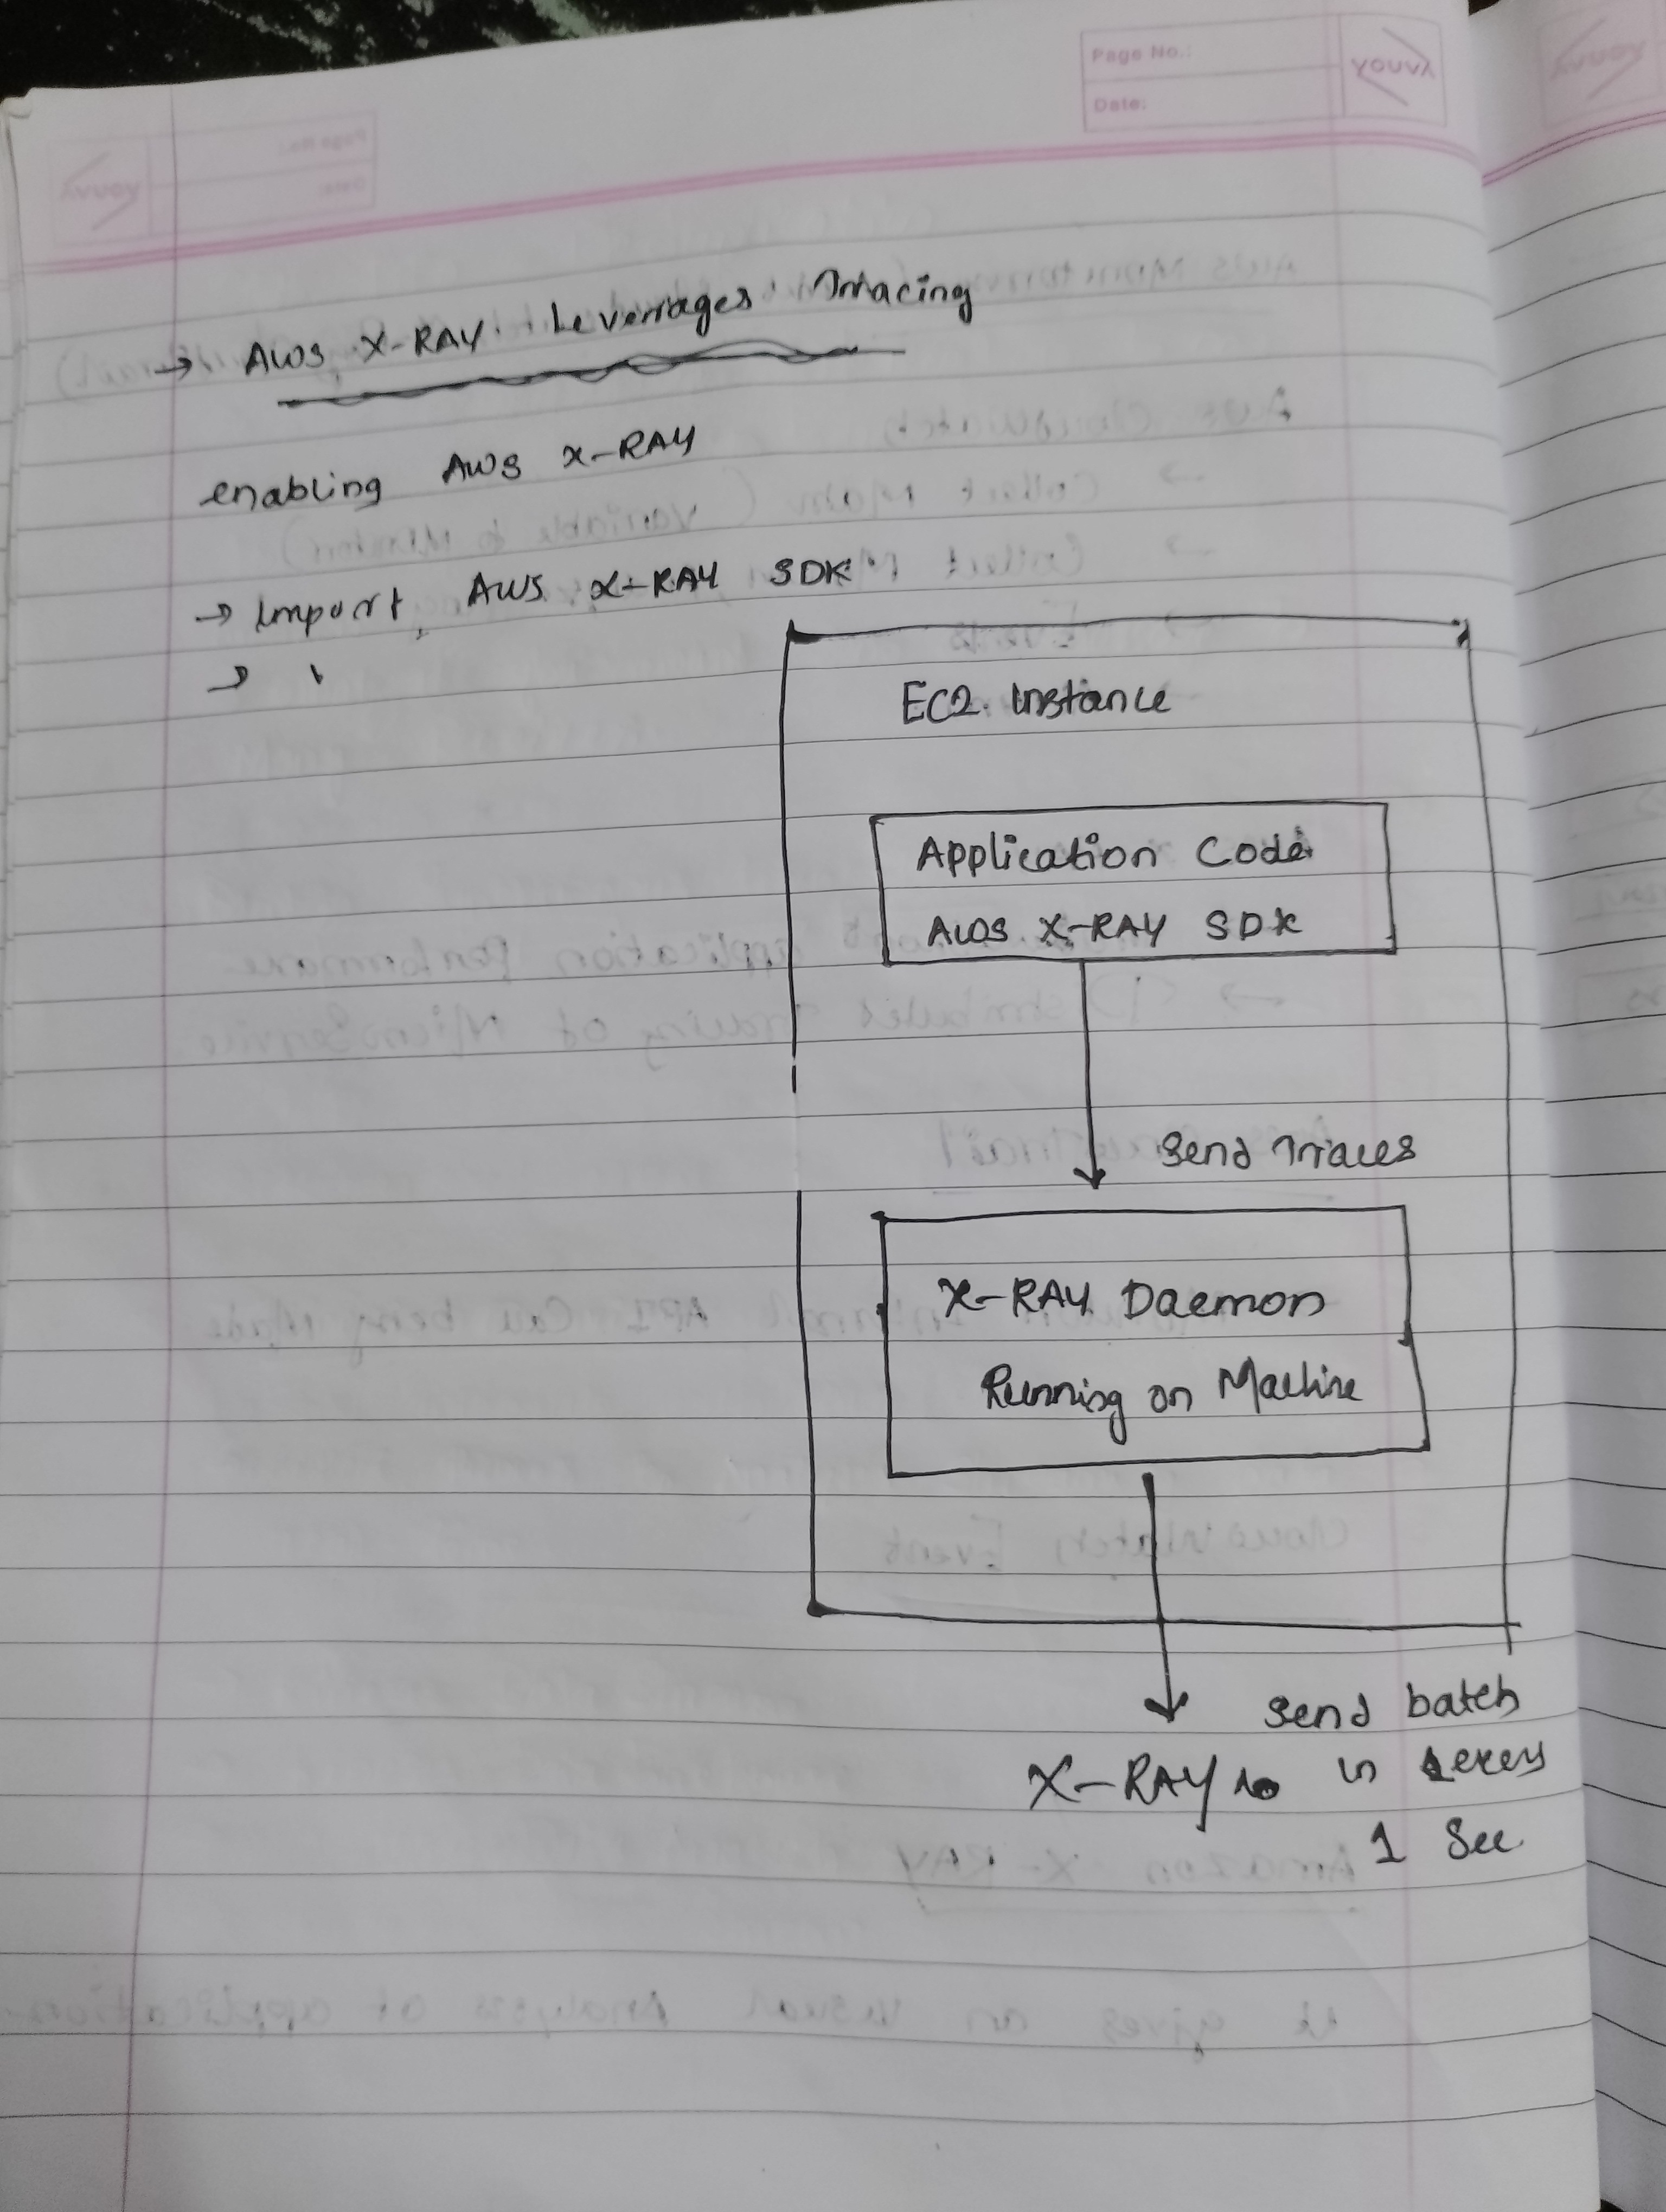 Page No.:
Date:
YOUVA
→ AWS X-RAY Leverages Tracing
enabling AWS X-RAY
→ Import AWS X-RAY SDK
→
EC2 Instance
Application Code
AWS X-RAY SDK
Send Traces
X-RAY Daemon
Running on Machine
Send batch
X-RAY in every
1 Sec